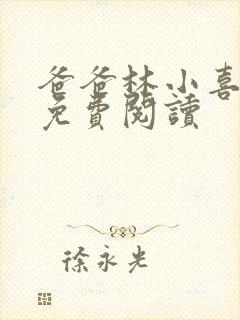 爸爸林小喜
免費閱讀
徐永光